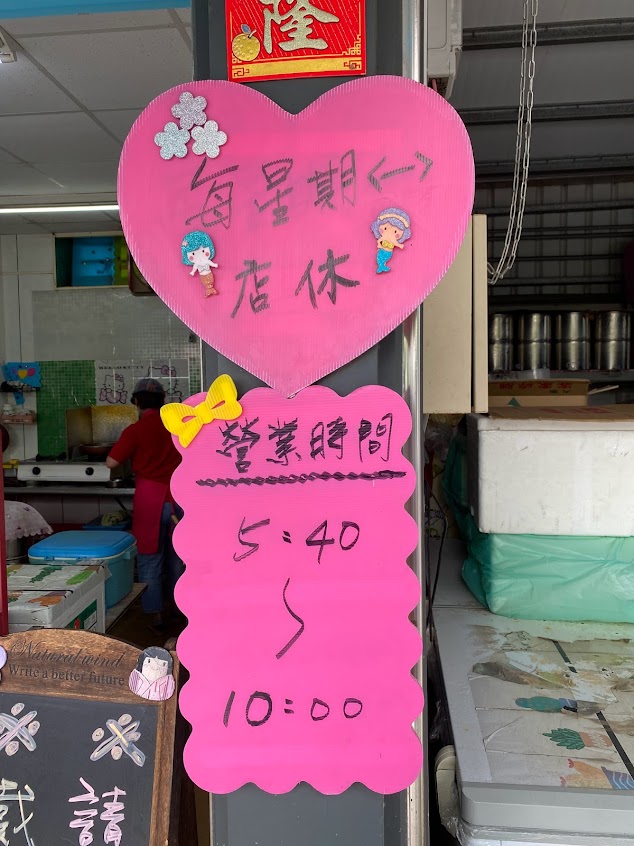 隆
每星期<一>
店休
營業時間
5:40
~
10:00
Natural wind
Write a better future
※ ※
請